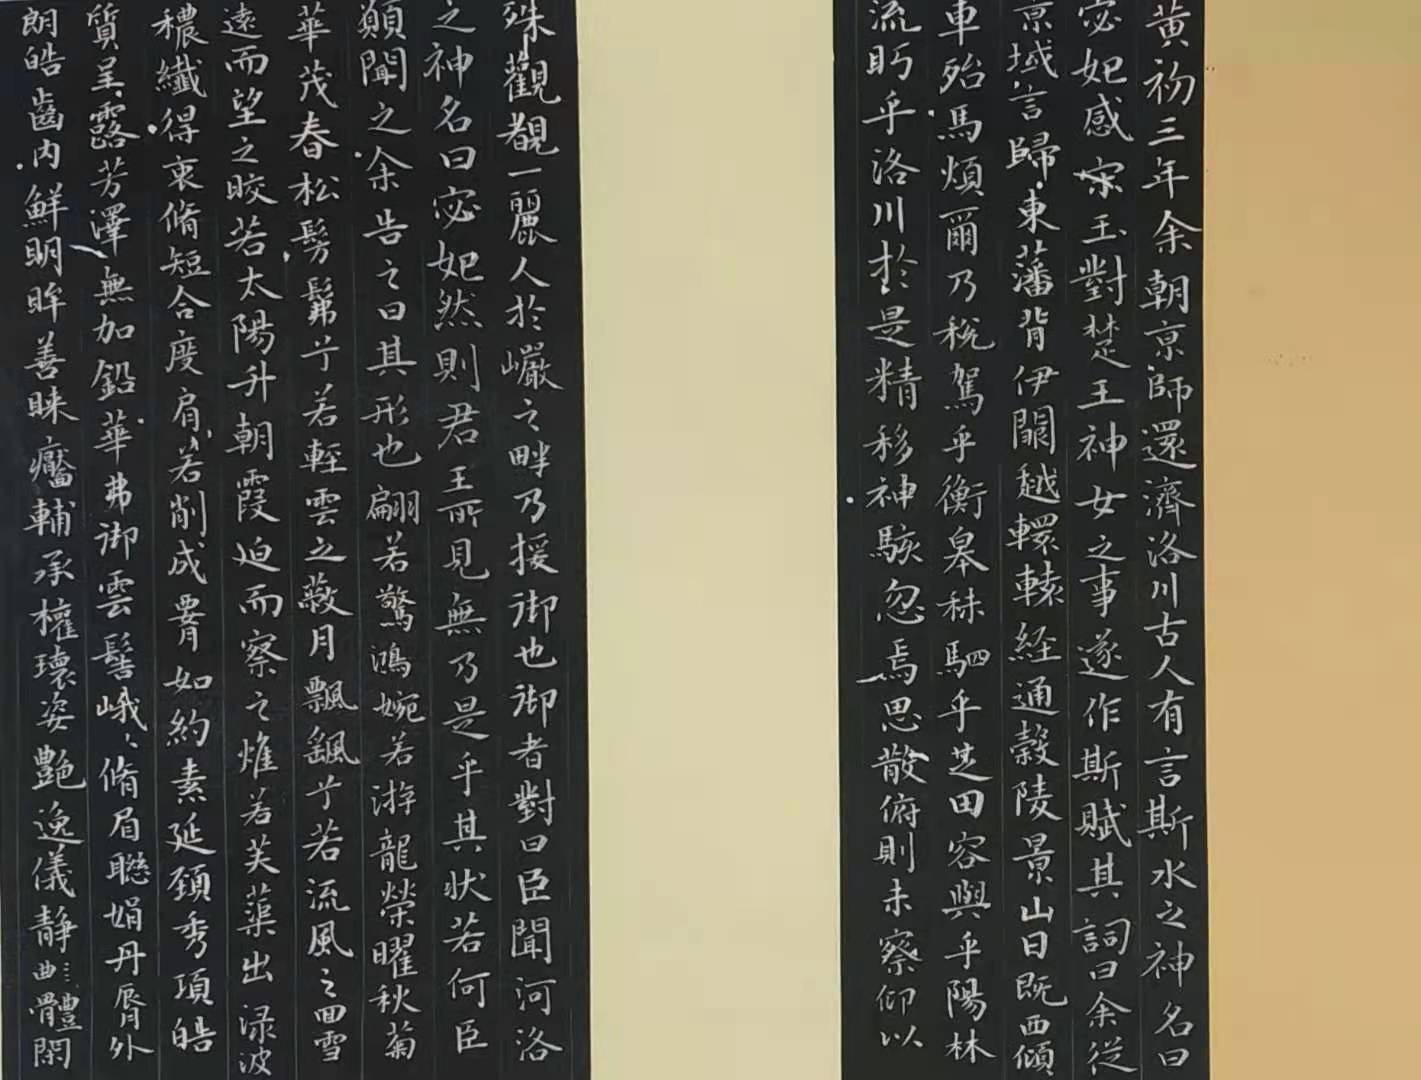 黄初三年余朝京師還濟洛川古人有言斯水之神名曰
宓妃感宋玉對楚王神女之事遂作斯賦其詞曰余從
京域言歸東藩背伊闕越轘轅経通穀陵景山日既西傾
車殆馬煩爾乃稅駕乎衡皋秣駟乎芝田容與乎陽林
流眄乎洛川於是精移神駭忽焉思散俯則未察仰以
殊觀覩一麗人於巖之畔乃援御也御者對曰臣聞河洛
之神名曰宓妃然則君王所見無乃是乎其状若何臣
願聞之余告之曰其形也翩若驚鴻婉若游龍榮曜秋菊
華茂春松髣髴兮若輕雲之蔽月飄飖兮若流風之迴雪
遠而望之晈若太陽升朝霞迫而察之灼若芙蕖出渌波
穠纖得衷脩短合度肩若削成腰如約素延頸秀項皓
質呈露芳澤無加鉛華弗御雲髻峨〻脩眉聮娟丹脣外
朗皓齒内鮮明眸善睞靨輔承權瓌姿艷逸儀靜曲體閑